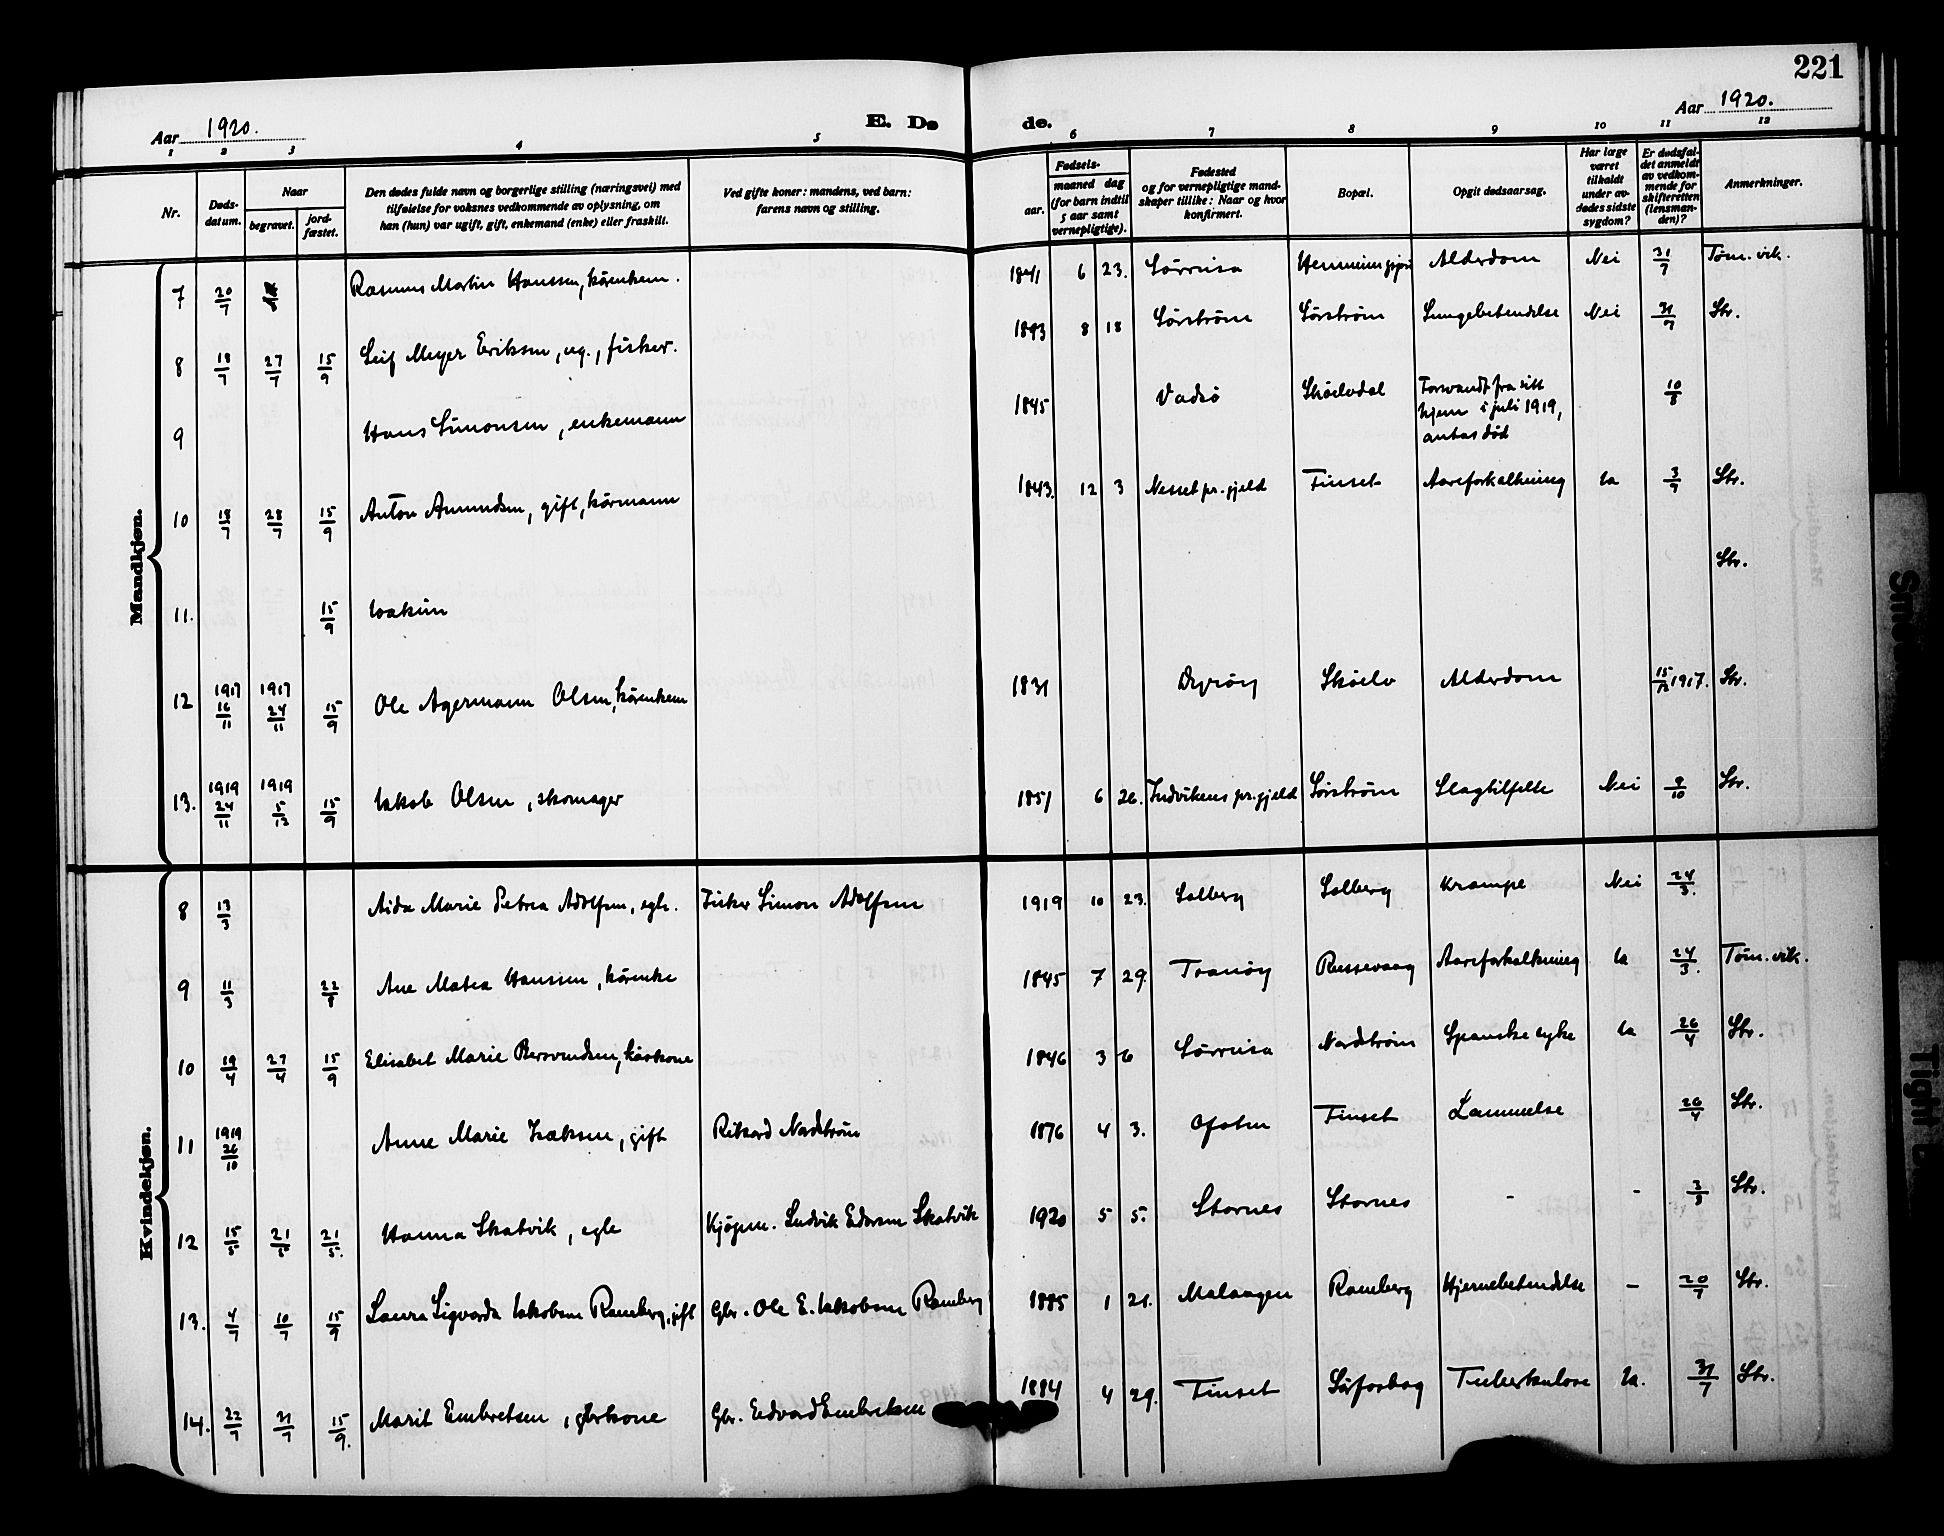 221
Aar 1920.
E. Dø
de.
Aar 1920.
1 2 3 4 5 6 7 8 9 10 11 12
Nr.
Døds-
datum.
Naar
begravet.
jord-
fæstet.
Den dødes fulde navn og borgerlige stilling (næringsvei) med
tilføielse for voksnes vedkommende av oplysning, om
han (hun) var ugift, gift, enkemand (enke) eller fraskilt.
Ved gifte koner: mandens, ved barn:
farens navn og stilling.
Fødsels-
aar.
maaned dag
(for barn indtil
5 aar samt
vernepligtige).
Fødested
og for vernepligtige mand-
skaper tillike: Naar og hvor
konfirmert.
Bopæl.
Opgit dødsaarsag.
Har læge
været
tilkaldt
under av-
dødes sidste
sygdom?
Er dødsfal-
det anmeldt
av vedkom-
mende for
skifteretten
(lensman-
den)?
Anmerkninger.
Mandkjøn.
7 20/7 Rasmus Martin Hanssen, kårenkem. 1841 6 23. Sørreisa Alderdom Nei 31/7 Tøm.vik.
8 18/7 27/7 15/9 Leif Meyer Eriksen, ug., fisker. 1893 8 18 Sørstrøm Sørstrøm Lungebetendelse Nei 31/7 Str.
9 Hans Simonsen, enkemann 1845 Vadsø Skøelvdal Forsvandt fra sitt
hjem i juli 1919,
antas død 10/8
10 18/7 28/7 15/9 Anton Amundsen, gift, kårmann 1843. 12 3 Nesset pr.gjeld Finset Aareforkalkning Ja 3/9 Str.
11. 15/9 Joakim Str.
12 1917 16/11 1917 24/11 15/9 Ole Agermann Olsen, kårenkem 1831 Dyrøy Skøelv Alderdom 15/12 1917. Str.
13. 1919 24/11 1919 5/12 15/9 Jakob Olsen, skomager 1851 6 26. Indvikens pr.gjeld Sørstrøm Slagtilfelle Nei 9/10 Str.
Kvindekjøn.
8 13/3 Aida Marie Petrea Adolfsen, egte. Fisker Simon Adolfsen 1919 10 23. Solberg Solberg Krampe Nei 24/3.
9 11/3 22/8 Ane Matea Hanssen, kårenke 1845 7 29. Tranøy Russevaag Aareforkalkning Ja 24/3. Tøm.vik.
10 19/4 27/4 15/9 Elisabet Marie Bersvendsen, kårkone 1846 3 6 Sørreisa Nordstrøm Spanske syke Ja 26/4 Str.
11 1919 26/10 Anne Marie Isaksen, gift Rikard Nordstrøm 1876 4 3. Ofoten Finset Lammelse 26/4 Str.
12 15/5 21/5 21/5. Hanna Skatvik, egte Kjøpm. Ludvik Edvrsen Skatvik 1920 5 5. Stornes Stornes - - 3/9 Str.
13. 4/7 10/7 15/9 Laura Sigvarda Jakobsen Ramberg, gift Gbr. Ole E. Jakobsen Ramberg 1885 1 21. Malangen Ramberg Hjernebetendelse - 20/7 Str.
14. 22/7 31/7 15/9. Marit Embretsen, gbrkone Gbr. Edvard Embretsen 1884 4 29. Finset Sørfosbog Tuberkulose Ja. 31/7 Str.